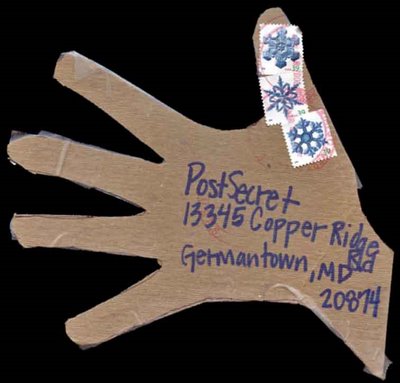 PostSecret
13345 Copper Ridge
Rd
Germantown, MD
20874